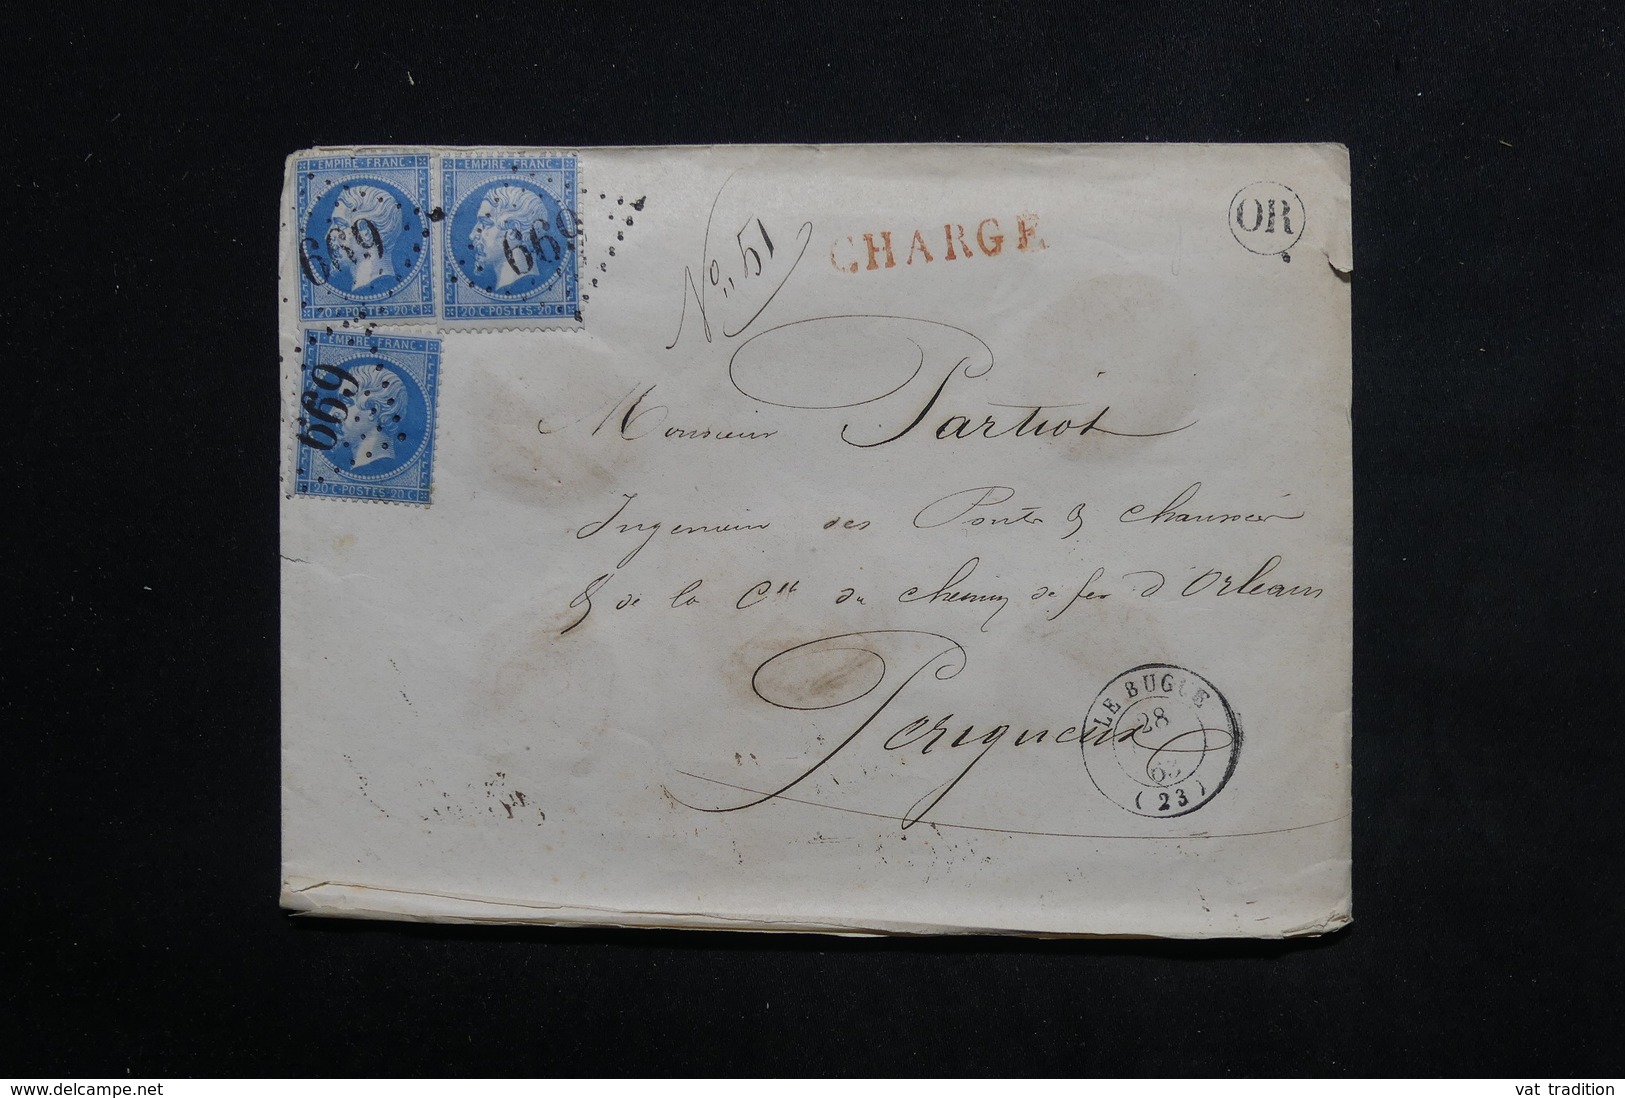 EMPIRE FRANC
EMPIRE FRANC
669
669
20 C POSTES 20 C
20 C POSTES 20 C
EMPIRE FRANC
669
20 C POSTES 20 C
N° 51
CHARGE
OR
Monsieur Partiot
Ingénieur des Ponts & Chaussées
& de la Cie du Chemin de fer d'Orléans
Perigueux
LE BUGUE
28
(23)
www.delcampe.net
vat tradition